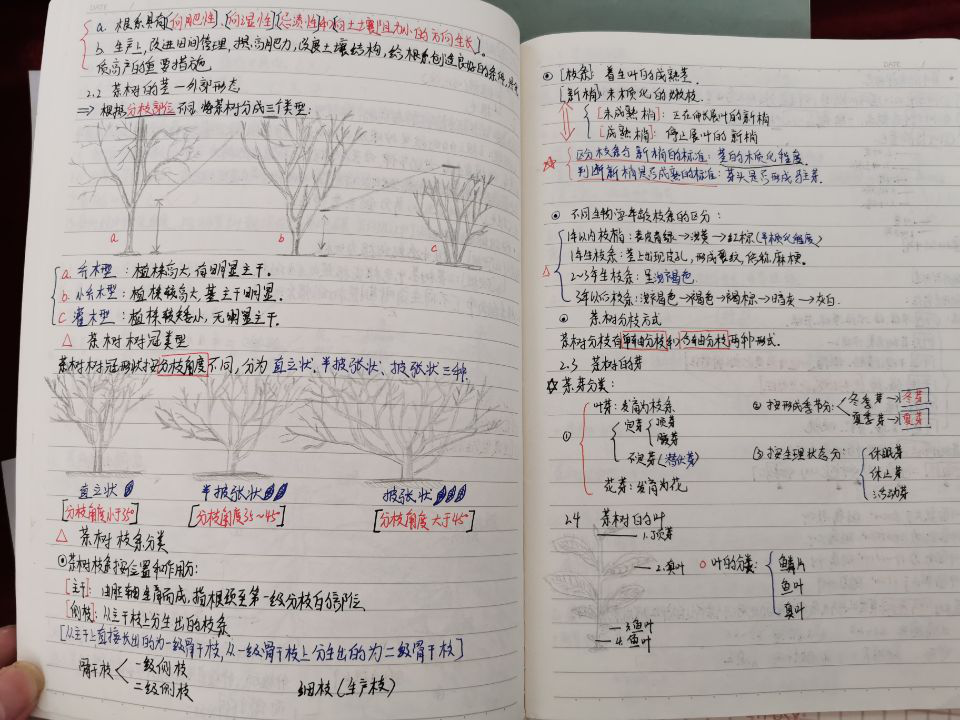 a. 根系具有[向肥性]、[向湿性]、[忌渍性]和[向土壤阻力小的方向生长]。
b. 生产上,改进田间管理,提高肥力,改良土壤结构,给根系创造良好的条件,
高产的重要措施
2.2 茶树的茎—外部形态
⇒ 根据分枝部位不同将茶树分成三个类型:
a
b
c
a. 乔木型:植株高大,有明显主干。
b. 小乔木型:植株较高大,基主干明显。
c 灌木型:植株较矮小,无明显主干。
△ 茶树树冠类型
茶树树冠形状按分枝角度不同,分为直立状、半披张状、披张状三种。
直立状 半披张状 披张状
[分枝角度小于35°] [分枝角度35~45°] [分枝角度大于45°]
△ 茶树枝条分类
茶树枝条按位置和作用分:
[主干]:由胚轴生育而成,指根颈至第一级分枝的部位
[侧枝]:从主干枝上分生出的枝条
[从主干上直接长出的为一级骨干枝,从一级骨干枝上分生出的为二级骨干枝]
骨干枝 一级侧枝
二级侧枝 细枝(生产枝)
[枝条]:着生叶的成熟茎.
[新梢]:未木质化的嫩枝.
[未成熟梢]:正在伸长展叶的新梢
[成熟梢]:停止展叶的新梢
区分枝条与新梢的标准:茎的木质化程度.
判断新梢是否成熟的标准:芽头是否形成驻芽.
不同生物学年龄枝条的区分:
1年以内枝梢:表皮青绿→浅黄→红棕(半木质化程度)
1年生枝条:茎上出现皮孔,形成裂纹,俗称麻梗.
2~3年生枝条:呈浅褐色
3年以上枝条:浅褐色→褐色→褐棕→暗灰→灰白.
茶树分枝方式
茶树分枝有单轴分枝和合轴分枝两种形式.
2.3 茶树的芽
☆ 茶芽分类:
① 叶芽:发育为枝条
定芽 顶芽
腋芽
不定芽(潜伏芽)
花芽:发育为花
② 按形成季节分: 冬季芽→冬芽
夏季芽→夏芽
③ 按生理状态分: 休眠芽
休止芽
活动芽
2.4 茶树的叶
1.顶芽
2.真叶
3.鱼叶
4.鱼叶
叶的分类: 鳞片
鱼叶
真叶